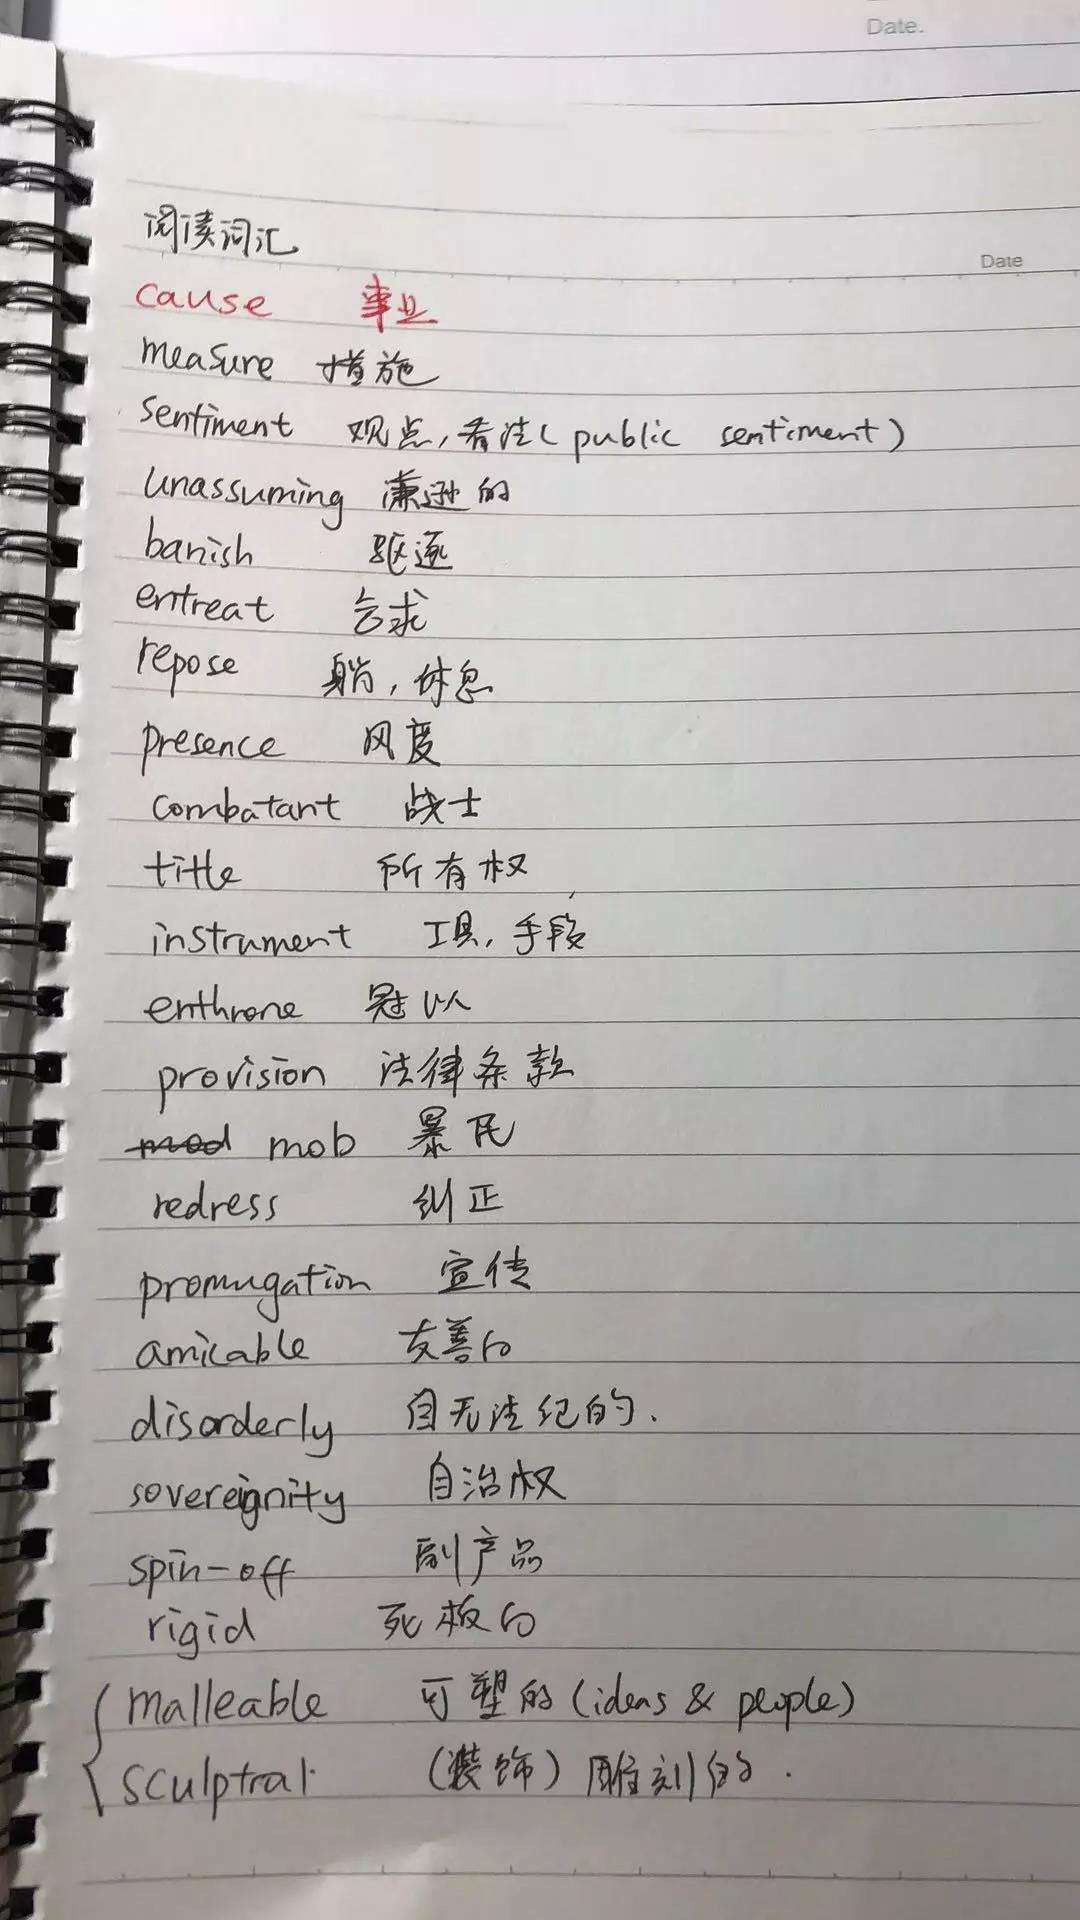 Date.
阅读词汇
Date
cause 事业
measure 措施
sentiment 观点,看法(public sentiment)
unassuming 谦逊的
banish 驱逐
entreat 乞求
repose 躺,休息
presence 风度
combatant 战士
title 所有权
instrument 工具,手段
enthrone 冠以
provision 法律条款
mod mob 暴民
redress 纠正
promugation 宣传
amicable 友善的
disorderly 目无法纪的.
sovereignity 自治权
spin-off 副产品
rigid 死板的
malleable 可塑的(ideas & people)
sculptral (装饰)雕刻的.